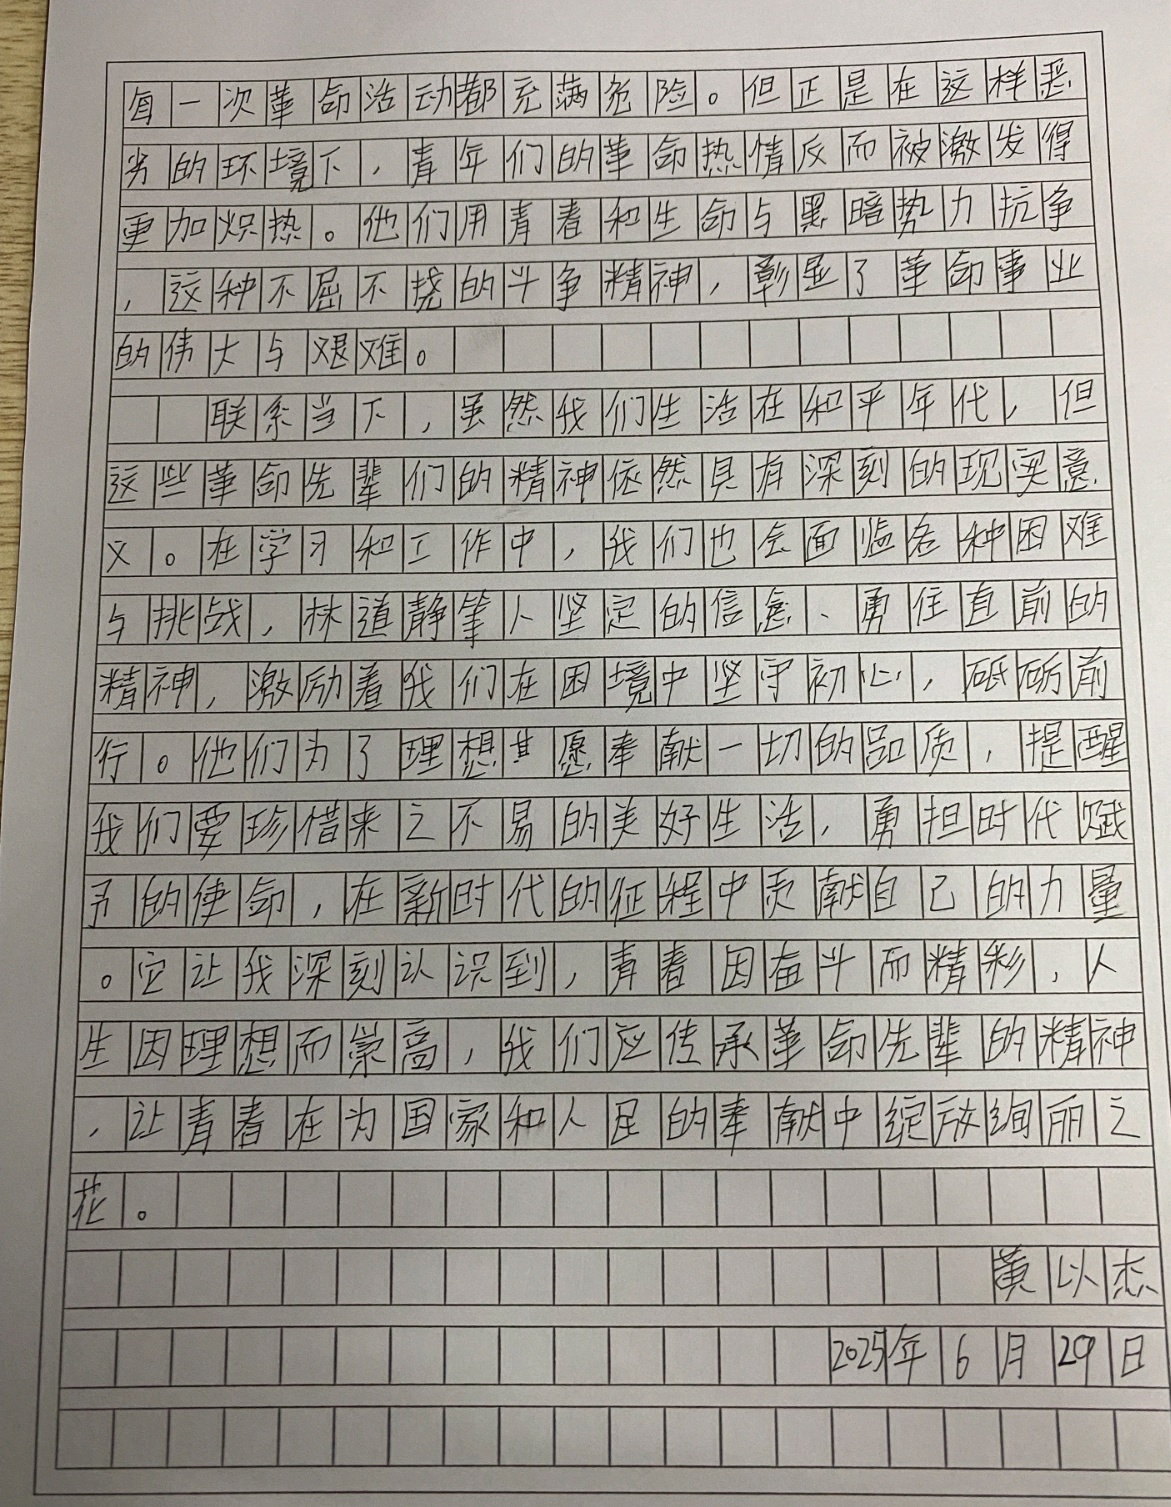 每一次革命活动都充满危险。但正是在这样恶
劣的环境下，青年们的革命热情反而被激发得
更加炽热。他们用青春和生命与黑暗势力抗争
，这种不屈不挠的斗争精神，彰显了革命事业
的伟大与艰难。
联系当下，虽然我们生活在和平年代，但
这些革命先辈们的精神依然具有深刻的现实意
义。在学习和工作中，我们也会面临各种困难
与挑战，林道静等人坚定的信念、勇往直前的
精神，激励着我们在困境中坚守初心，砥砺前
行。他们为了理想甘愿奉献一切的品质，提醒
我们要珍惜来之不易的美好生活，勇担时代赋
予的使命，在新时代的征程中贡献自己的力量
。它让我深刻认识到，青春因奋斗而精彩，人
生因理想而崇高，我们应传承革命先辈的精神
，让青春在为国家和人民的奉献中绽放绚丽之
花。
黄以杰
2025年6月29日